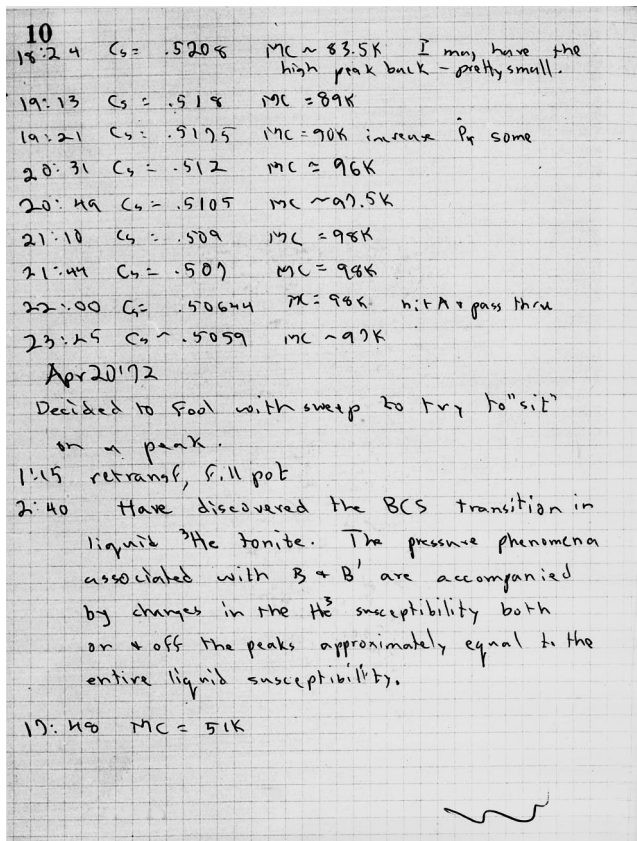 10
18:24 Cs = .5208 MC ~ 83.5K I may have the
high peak back – pretty small.
19:13 Cs = .518 MC = 89K
19:21 Cs = .5175 MC = 90K increase some
20:31 Cs = .512 MC ≃ 96K
20:49 Cs = .5105 MC ~97.5K
21:10 Cs = .509 MC = 98K
21:44 Cs = .507 MC = 98K
22:00 Cs= .50644 MC = 98K hit A & pass thru
23:25 Cs ~ .5059 MC ~97K
Apr 20 '72
Decided to fool with sweep to try to "sit"
on a peak.
1:15 retransf, fill pot
2:40 Have discovered the BCS transition in
liquid ³He tonite. The pressure phenomena
associated with B & B' are accompanied
by changes in the He³ susceptibility both
on & off the peaks approximately equal to the
entire liquid susceptibility.
17:48 MC = 51K